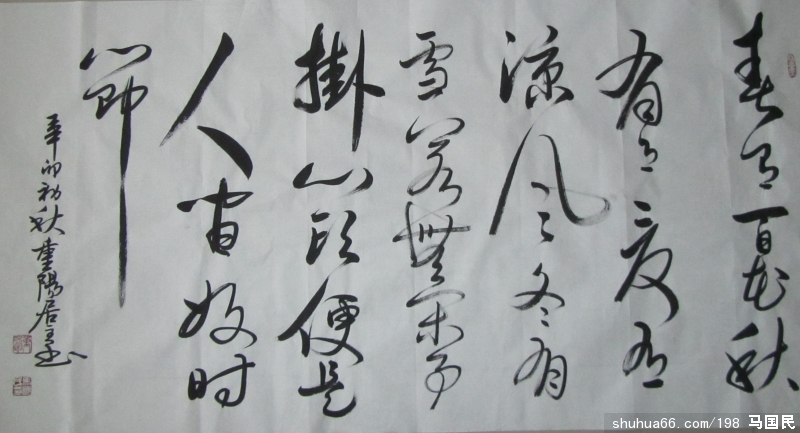 春有百花秋
有月夏有
凉风冬有
雪若無闲事
掛心头便是
人间好时
節
辛卯初秋重陽居主书
shuhua66.com/198 马国民